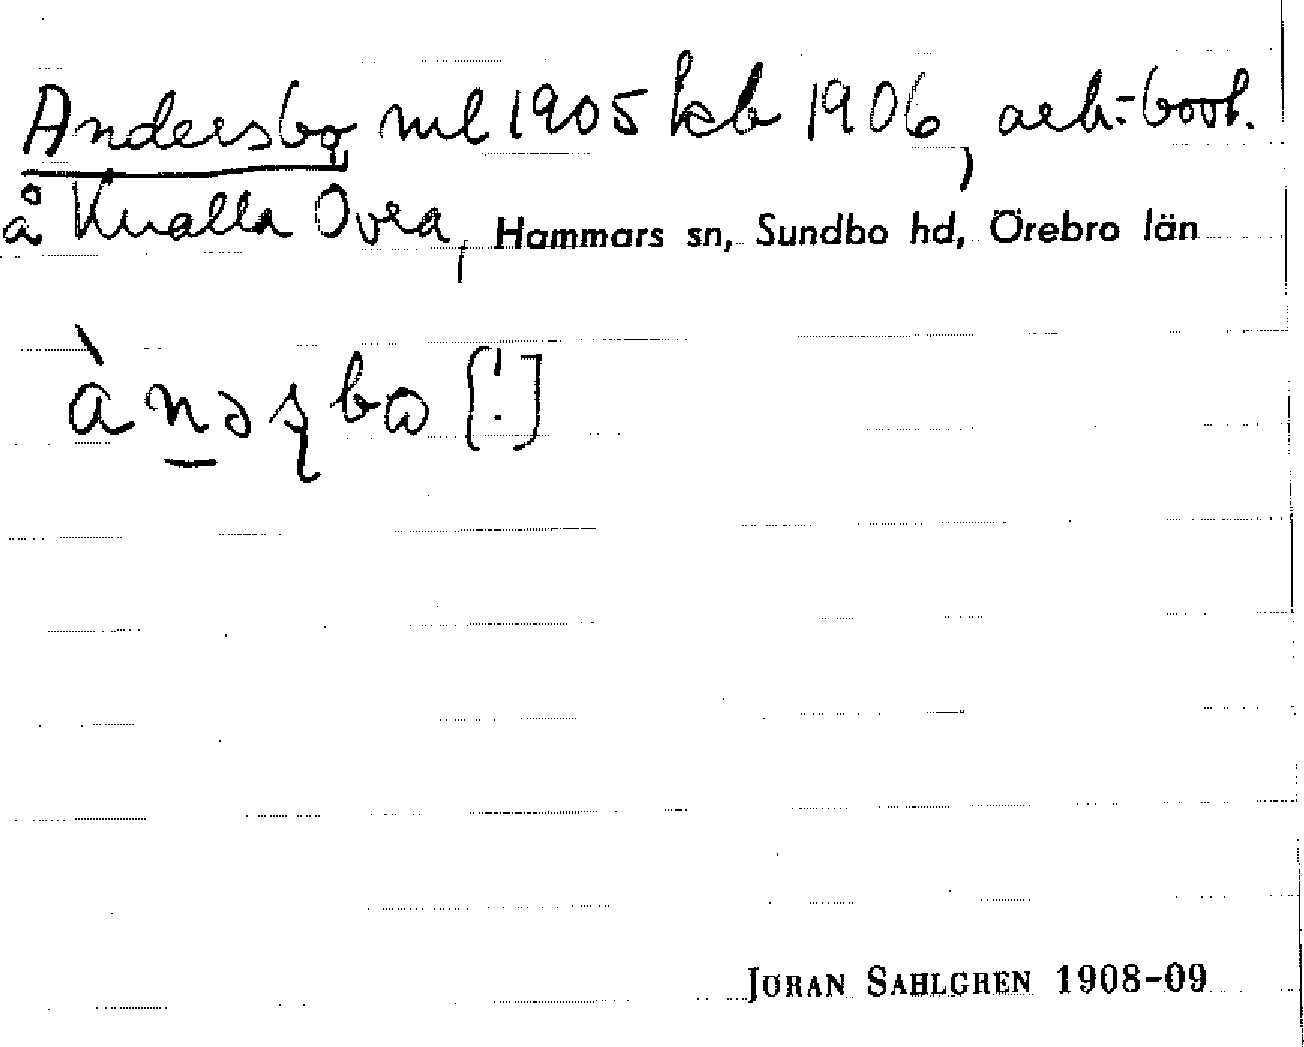 Andersbo ml 1905 kb 1906,
å Knalla Övra, Hammars sn, Sundbo hd, Örebro län
JÖRAN SAHLGREN 1908-09